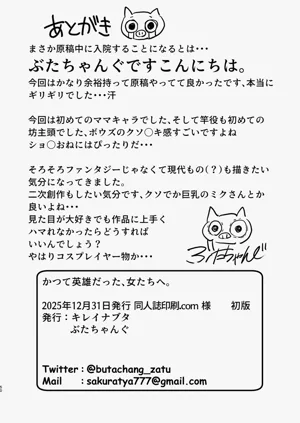 あとがき
まさか原稿中に入院することになるとは・・・
ぶたちゃんぐですこんにちは。
今回はかなり余裕持って原稿やってて良かったです、本当に
ギリギリでした・・・汗
今回は初めてのママキャラでした、そして竿役も初めての
坊主頭でした、ボウズのクソ〇キ感すごいですよね
ショ〇おねにはぴったりだ・・・
そろそろファンタジーじゃなくて現代もの(？)も描きたい
気分になってきました。
二次創作もしたい気分です、クソでか巨乳のミクさんとか
良いよね・・・
見た目が大好きでも作品に上手く
ハマれなかったらどうすれば
いいんでしょう？
やはりコスプレイヤー物か・・・
ぶたちゃんぐ
かつて英雄だった、女たちへ。
2025年12月31日発行 同人誌印刷.com 様 初版
発行：キレイナブタ
ぶたちゃんぐ
Twitter : @butachang_zatu
Mail : sakuratya777@gmail.com